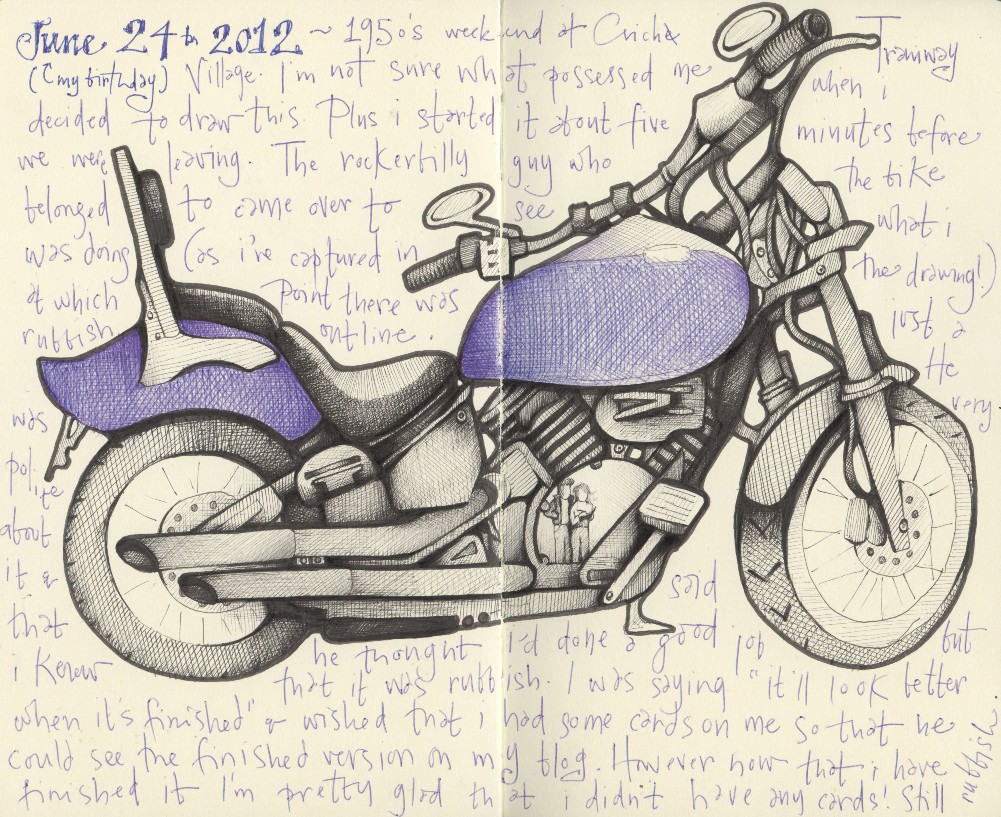 June 24th 2012 ~ 1950's weekend at Crich Tramway
(my birthday) Village. I'm not sure what possessed me when i
decided to draw this. Plus i started it about five minutes before
we were leaving. The rockerbilly guy who the bike
belonged to came over to see what i
was doing (as i've captured in the drawing!)
at which Point there was just a
rubbish outline. He
was very
polite
about
it & said
that he thought i'd done a good job but
i knew that it was rubbish. I was saying "it'll look better
when it's finished" & wished that i had some cards on me so that he
could see the finished version on my blog. However now that i have
finished it I'm pretty glad that i didn't have any cards! Still
rubbish.